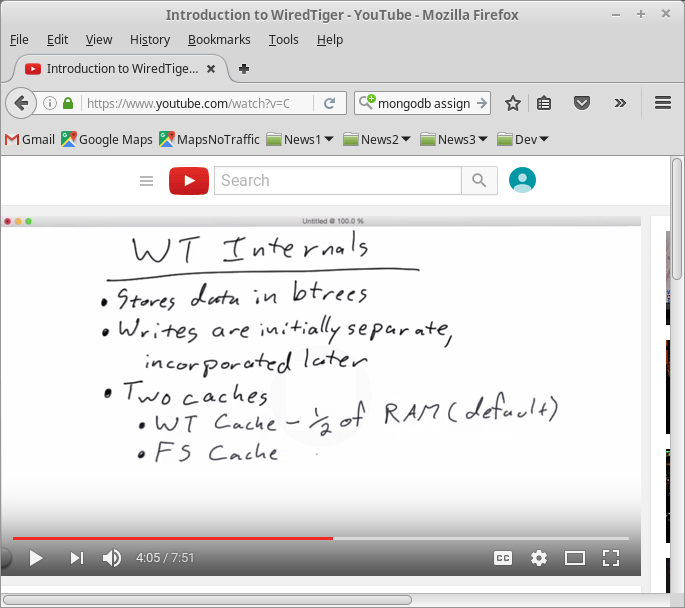 Introduction to WiredTiger - YouTube - Mozilla Firefox
File Edit View History Bookmarks Tools Help
Introduction to WiredTige...
https://www.youtube.com/watch?v=C mongodb assign
Gmail Google Maps MapsNoTraffic News1 News2 News3 Dev
Search
Untitled @ 100.0 %
WT Internals
• Stores data in btrees
• Writes are initially separate,
incorporated later
• Two caches
• WT Cache - 1/2 of RAM (default)
• FS Cache
4:05 / 7:51 CC